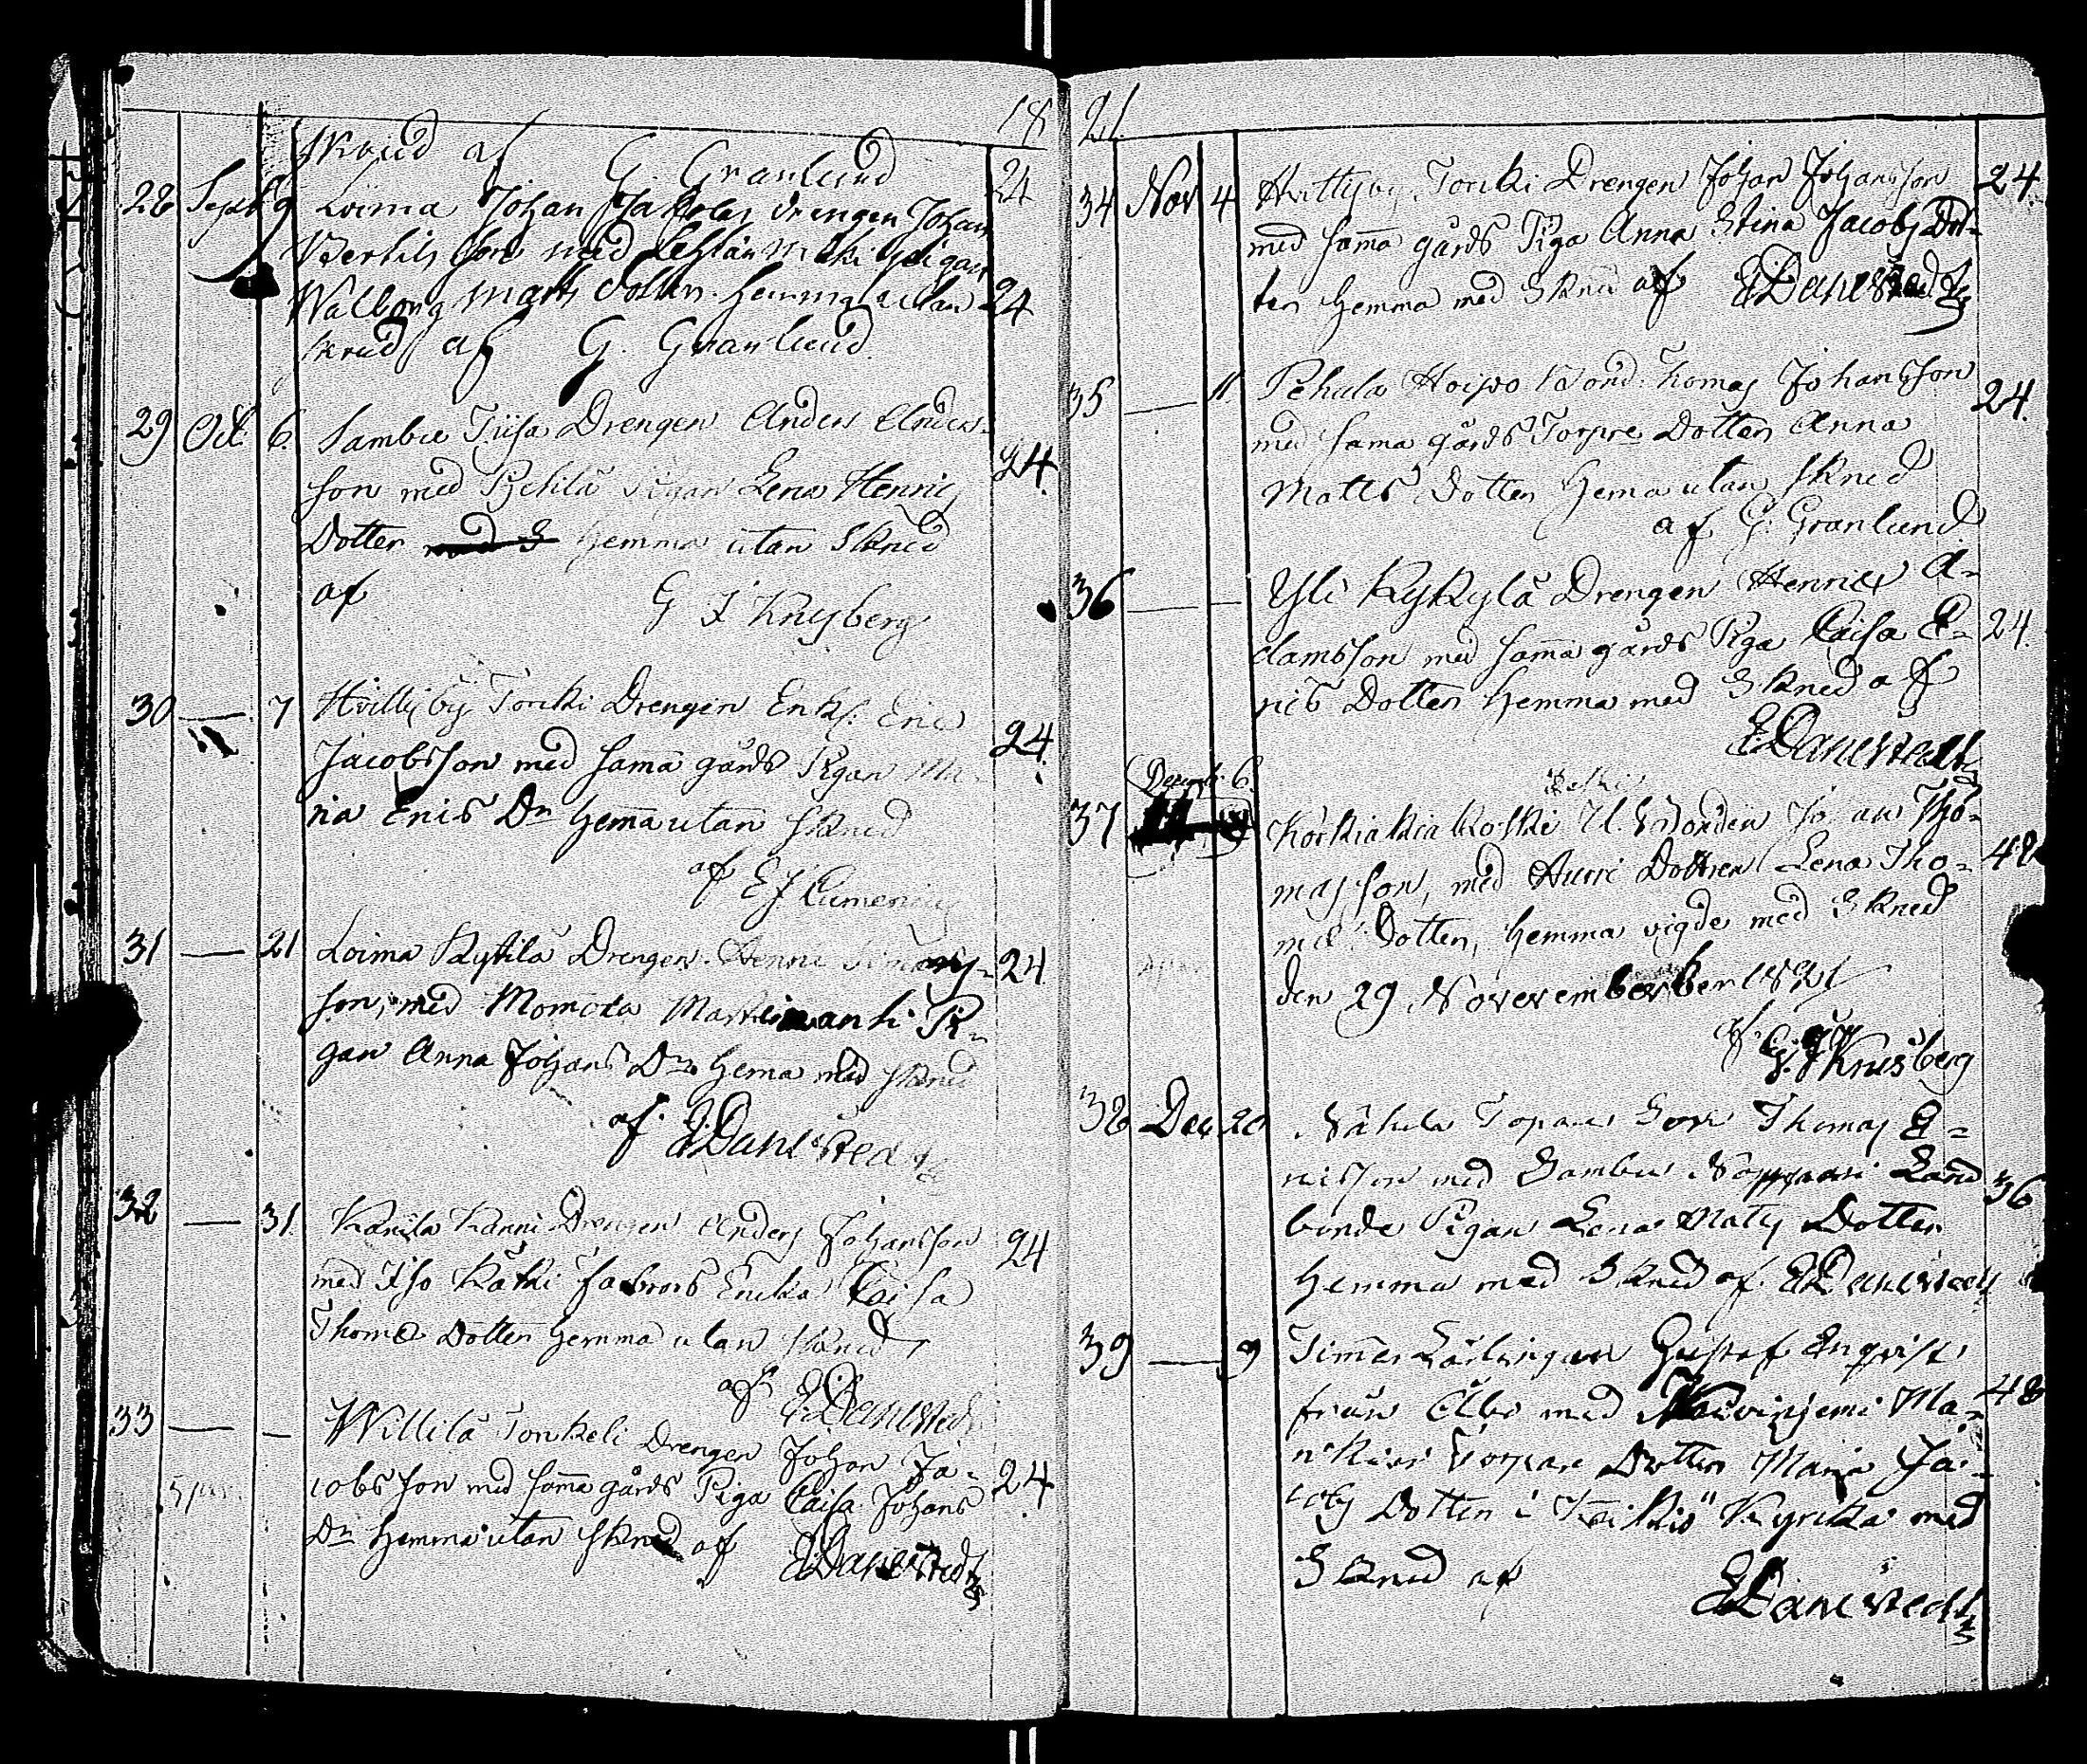 18
Skrud af G. Granlund 24
28 Sept 9 Loima Johan Jakolas drengen Johan
Bertils son med Lehtiän Mtki Pigan
Walborg Matts dotter hemma utan 24
skrud af G. Granlund
29 Oct 6. Sambu Tiisa Drengen Anders Anders-
son med Pehkla Pigan Lena Henrics 24.
Dotter hemma utan Skrud
af G J Krysberg
30 — 7 Hvittis by Torcki Drengen Enkl: Eric
Jacobsson med sama gårds Pigan Ma- 24.
ria Erics Dr hema utan skrud
af E J Cumenius
31 — 21 Loima Kykilä Drengen Henric Simons- 24
son, med Momola Pi-
gan Anna Johans Dr hema med skrud
af E Danelstedt
32 — 31. Karila Kanni Drengen Anders Johansson 24
med Iso Kätki fabrors Enka Caisa
Thomæ Dotter hemma utan skrud
af E Danelstedt
33 — — Willilä Tonkeli Drengen Johan Ja-
cobsson med sama gårds Piga Caisa Johans 24
Dr hemma utan skrud af E Danelstedt
21
34 Nov 4 Hvittis by Torcki Drengen Johan Johansson 24.
med sama gårds Piga Anna Stina Jacobs Dot-
ter hemma med Skrud af E Danelstedt
35 — 11 Pehula Hoipo Bond: Thomas Johansson 24.
med sama gårds Torpre Dotter Anna
Matts Dotter hema utan skrud
af G. Granlund
36 — — Yli Kykylä Drengen Henric A-
damsson med sama gårds Piga Caisa E- 24.
rics Dotter hemma med Skrud af
E Danelstedt
Decemb: 6.
37 Korkiakoski U. Bonden Johan Tho-
masson, med Aurri Dottren Lena Tho- 48
mæ Dotter, hemma vigde med Skrud
den 29 November 1821
af G. J Krusberg
38 Dec 20 Nähula Topare Son Thomas E-
ricsson med Sambu Noppari Land 36
bonde Pigan Lena Matts Dotter
hemma med Skrud af E Danelstedt
39 — 9 Timer Lärlingen Gustaf Enqvist
från Åbo med Kauvinjemi Ma- 48
Torpare Dotter Maria Ja-
cobs Dotter i Keikiö Kyrcka med
Skrud af
E Danelstedt